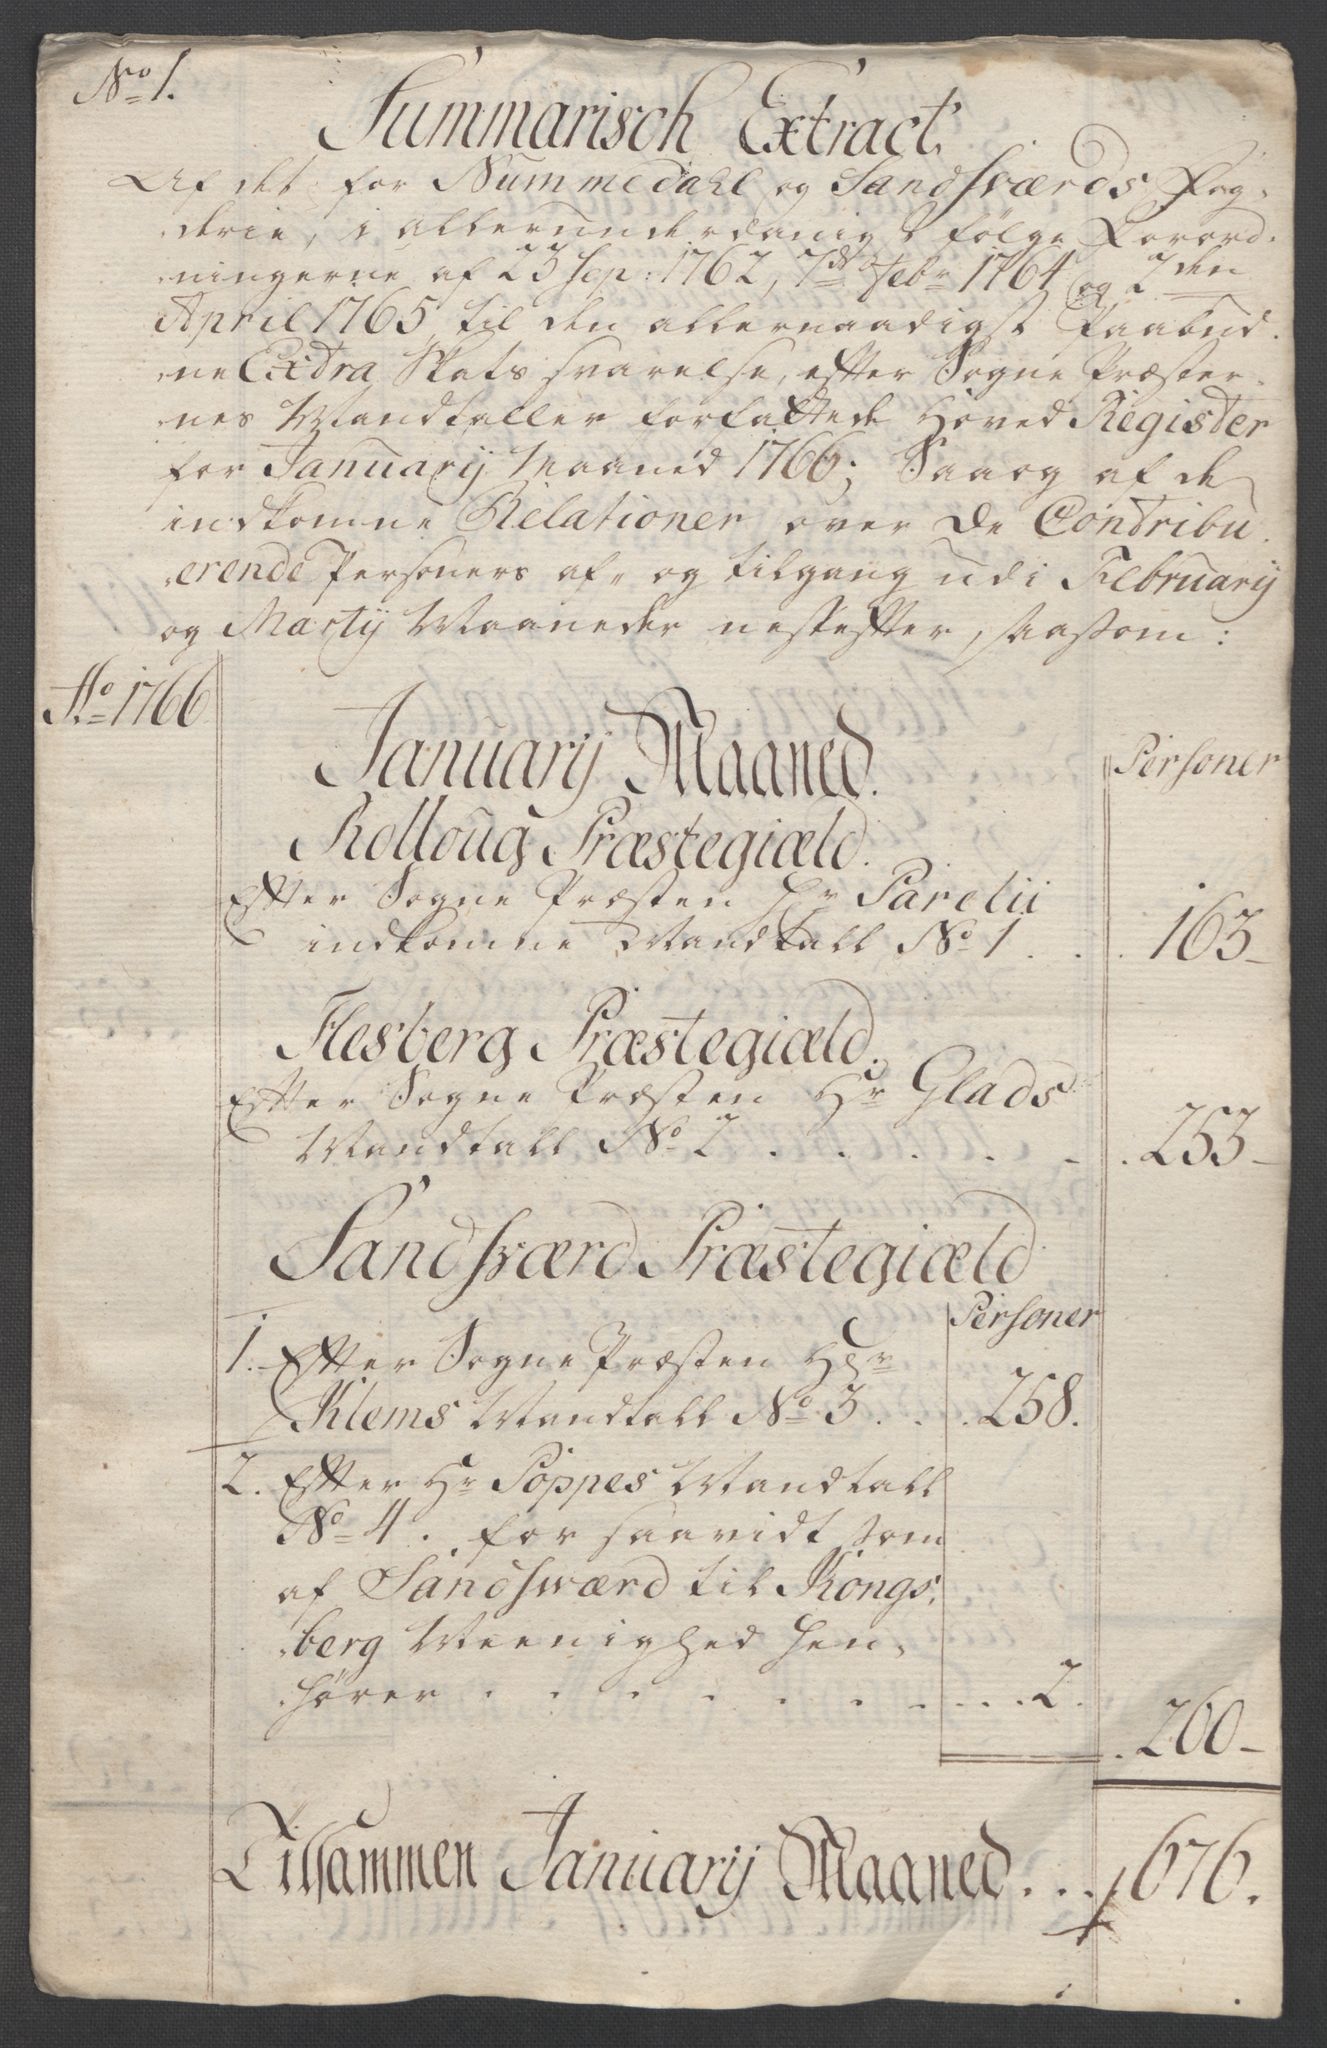 No 1.
Summarisch Extract,
Af det for Nummedahl og Sandsværds Fog-
derie, i allerunderdanigst følge Forord-
ningerne af 23 Sep: 1762, 7de Febr 1764 og 2den
April 1765, til den allernaadigst Paabud-
ne Extra Skats svarelse, efter Sogne Præster-
nes Mandtaller forfattede Hoved Register
for January Maaned 1766; Saa og af de
indkomne Relationer over De Contribu-
erende Personers af- og tilgang udi February
og Marty Maaneder nestefter, saasom:
Ao 1766
January Maaned.
Personer
Rolloug Præstegiæld.
Efter Sogne Præsten Hr Parelii
indkomne Mandtall No 1 . . . 163-
Flesberg Præstegiæld.
Efter Sogne Præsten Hr Glads
Mandtall No 2 . . . . . . . 253-
Sandsværd Præstegiæld
Personer
1. Efter Sogne Præsten Hr
Klems Mandtall No 3 . . . 258.
2. Efter Hr Poppes Mandtall
No 4. for saavidt som
af Sandsværd til Kongs-
berg Meenighed hen-
hører . . . . . . . . . . 2.
. 260-
Tilsammen January Maaned. . . 676.